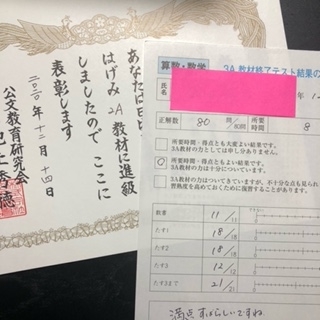 あなたは日
はげみ 2A 教材に進級
しましたので ここに
表彰します
二〇二〇年十二月十四日
公文教育研究会
算数・数学
3A 教材終了テスト結果の
氏名
年 12
正解数 80 /80問 所要時間 8
所要時間・得点とも大変よい結果です。
3A教材の力としては申し分ありません。
所要時間・得点ともよい結果です。
3A教材の力は十分についています。
3A教材の力はついてきていますが、不十分な点も見られ
数書 11/11
たす1 18/18
たす2 18/18
たす3 12/12
たす3まで 21/21
満点すばらしいですね